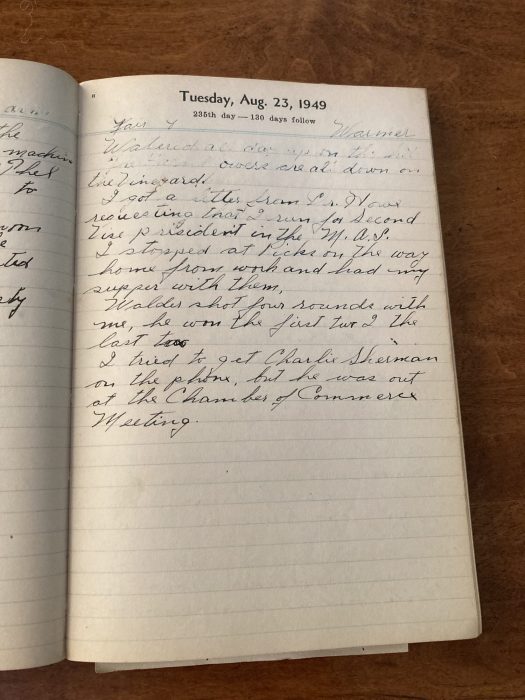 the
machin
Thel
to
ted
ty
Tuesday, Aug. 23, 1949
235th day — 130 days follow
Fair & Warmer
Watered all day up on the
down on
the Vineyard.
I got a letter from Dr. Howe
requesting that I run for second
Vise president in the M. A. S.
I stopped at Dicks on the way
home from work and had my
supper with them.
Walder shot four rounds with
me, he won the first two I the
last two
I tried to get Charlie Sherman
on the phone, but he was out
at the Chamber of Commerce
Meeting.